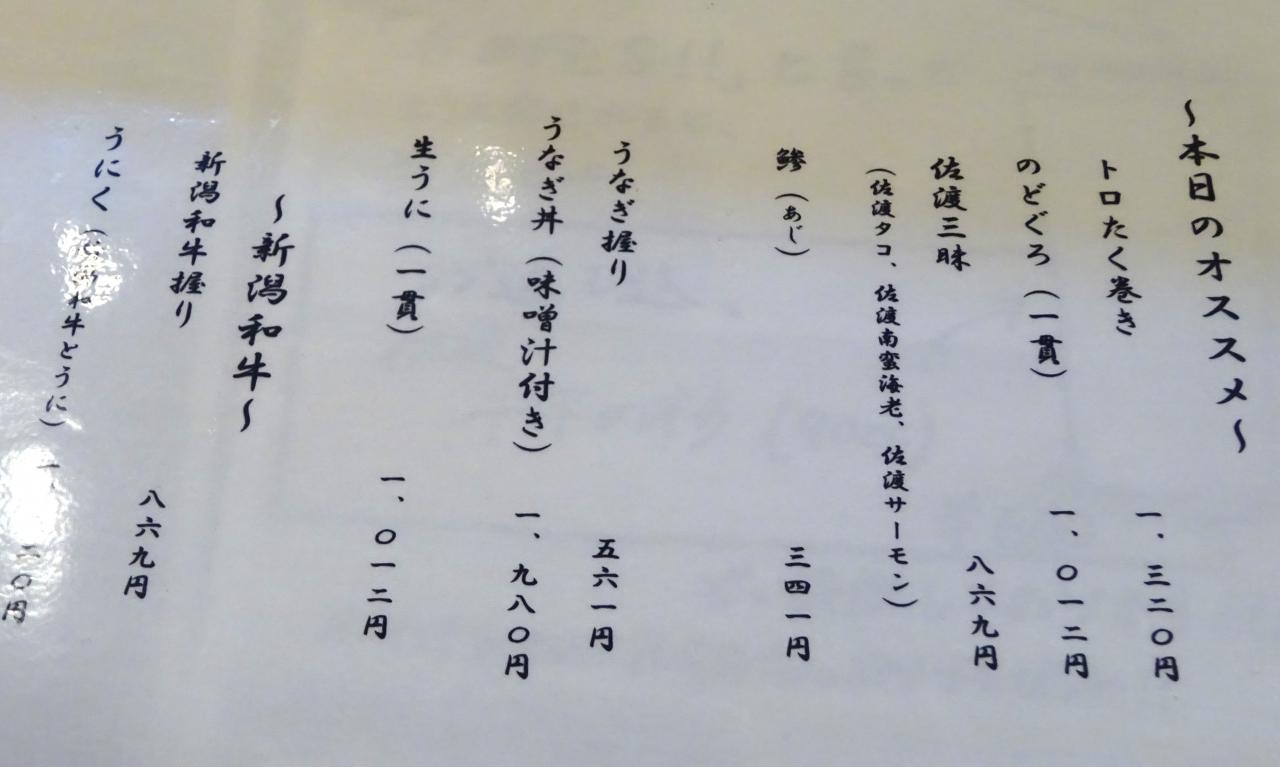 ～本日のオススメ～
トロたく巻き 一、三二〇円
のどぐろ（一貫） 一、〇一二円
佐渡三昧 八六九円
（佐渡タコ、佐渡南蛮海老、佐渡サーモン）
鯵（あじ） 三四一円
うなぎ握り 五六一円
うなぎ丼（味噌汁付き） 一、九八〇円
生うに（一貫） 一、〇一二円
～新潟和牛～
新潟和牛握り 八六九円
うにく（ 牛とうに）